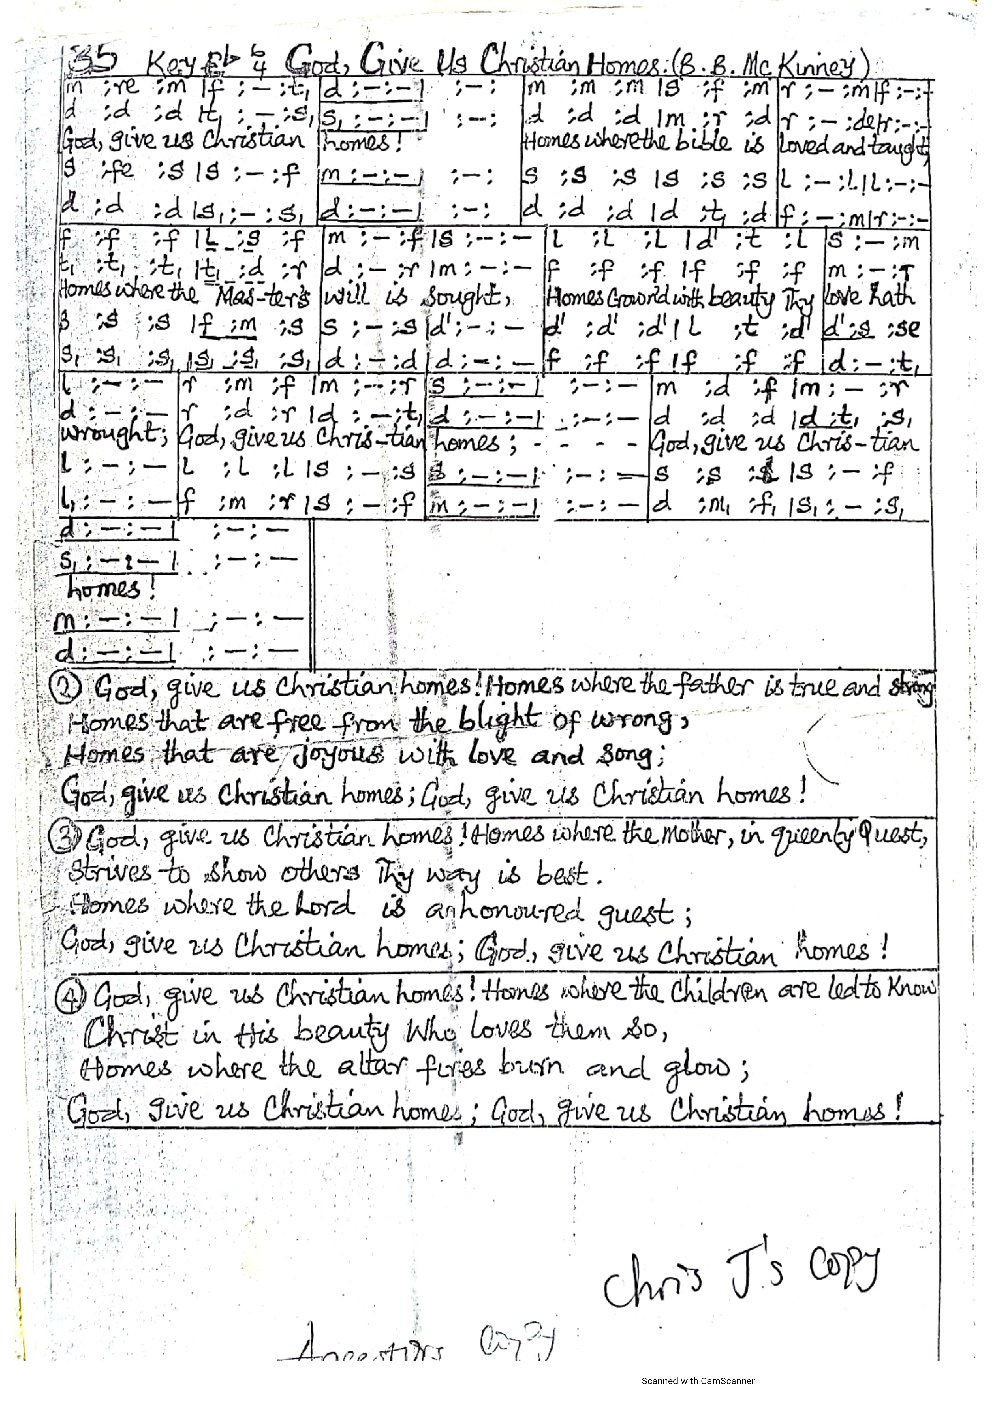 35 Key E♭ 6/4 God, Give Us Christian Homes. (B. B. Mc Kinney)
m :re :m |f :-:t, |d:-:-| :-: |m :m :m |s :f :m |r :-:m|f:-:f
d :d :d |t, :-:s, |s,:-:-| :-: |d :d :d |m :r :d |r :-:de|r:-:-
God, give us Christian homes! Homes where the bible is loved and taught,
s :fe :s |s :-:f |m:-:-| :-: |s :s :s |s :s :s |L :-:L|L:-:-
d :d :d |s, :-:s, |d:-:-| :-: |d :d :d |d :t, :d |f :-:m|r:-:-
f :f :f |L :s :f |m :-:f |s :-:- |l :L :L |d' :t :L |s :-:m
t, :t, :t, |t, :d :r |d :-:r |m :-:- |f :f :f |f :f :f |m :-:r
Homes where the Mas-ter's will is sought, Homes Crown'd with beauty Thy love hath
s :s :s |f :m :s |s :-:s |d' :-:- |d' :d' :d' |L :t :d' |d':s :se
s, :s, :s, |s, :s, :s, |d :-:d |d :-:- |f :f :f |f :f :f |d :-:t,
l :-:- |r :m :f |m :-:r |s :-:-| :-:- |m :d :f |m :- :r
d :-:- |r :d :r |d :-:t, |d :-:-| :-:- |d :d :d |d :t, :s,
wrought; God, give us Chris-tian homes; - - - - God, give us Chris-tian
l :-:- |L :L :L |s :-:s |s :-:-| :-:- |s :s :l |s :- :f
l, :-:- |f :m :r |s :-:f |m :-:-| :-:- |d :m, :f, |s, :- :s,
d :-:-| :-:-
s, :-:-| :-:-
homes!
m :-:-| :-:-
d :-:-| :-:-
② God, give us Christian homes! Homes where the father is true and strong
Homes that are free from the blight of wrong,
Homes that are joyous with love and song;
God, give us Christian homes; God, give us Christian homes!
③ God, give us Christian homes! Homes where the Mother, in queenly Quest,
Strives to show others Thy way is best.
Homes where the Lord is an honoured guest;
God, give us Christian homes; God, give us Christian homes!
④ God, give us Christian homes! Homes where the Children are led to Know
Christ in His beauty Who loves them so,
Homes where the altar fires burn and glow;
God, give us Christian homes; God, give us Christian homes!
Chris J's copy
Copy
Scanned with CamScanner